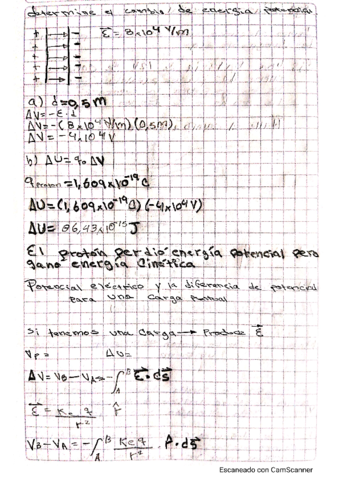 determine el cambio de energía potencial
+ -
+ -
+ -
+ -
+ -
E⃗ = 8x10⁴ V/m
a) d=0,5m
ΔV=-E·d
ΔV=-(8x10⁴ V/m)(0,5m)
ΔV=-4x10⁴V
b) ΔU=q₀ΔV
q proton=1,609x10⁻¹⁹C
ΔU=(1,609x10⁻¹⁹C)(-4x10⁴V)
ΔU= 06,43x10⁻¹⁵J
El protón perdió energía potencial pero
gano energía Cinética
Potencial eléctrico y la diferencia de potencial
para una carga puntual
Si tenemos una Carga → Produce E⃗
Vp = ΔU=
ΔV=VB-VA=-∫ₐᴮ E⃗·ds⃗
E⃗ = Ke q / r² r̂
VB-VA=-∫ₐᴮ Ke q / r² r̂·ds⃗
Escaneado con CamScanner